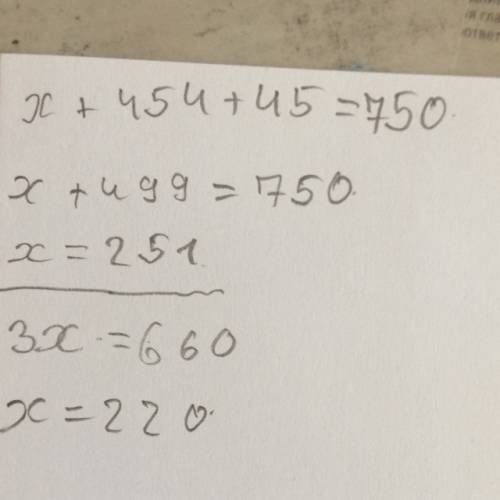 x + 454 + 45 = 750.
x + 499 = 750.
x = 251
3x = 660
x = 220.